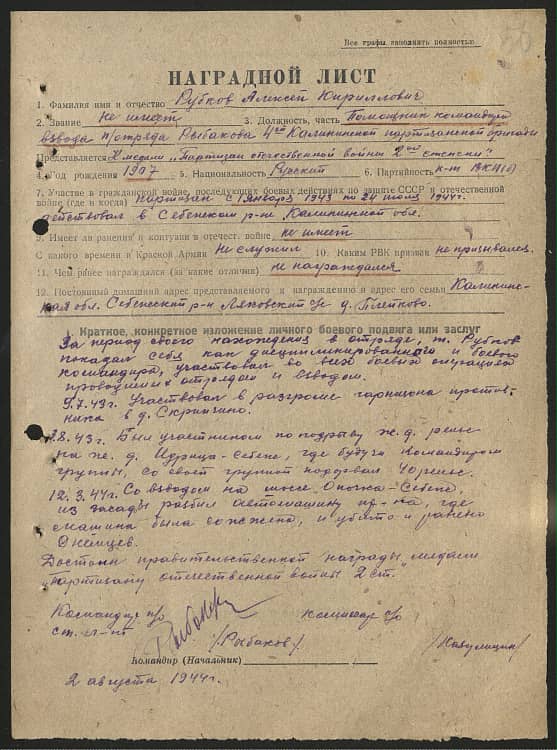 Все графы заполнять полностью
НАГРАДНОЙ ЛИСТ
1. Фамилия имя и отчество Рубков Алексей Кириллович
2. Звание не имеет 3. Должность, часть Помощник командира
взвода п/отряда Рыбакова 4ой Калининской партизанской бригады
Представляется К медали „Партизан отечественной войны 2ой степени"
4. Год рождения 1907 5. Национальность Русский 6. Партийность к-т ВКП(б)
7. Участие в гражданской войне, последующих боевых действиях по защите СССР и отечественной
войне (где и когда) партизан с 1 января 1943 по 24 июля 1944г.
действовал в Себежском р-не Калининской обл.
8. Имеет ли ранения и контузии в отечест. войне не имеет
9. С какого времени в Красной Армии Не служил 10. Каким РВК призван не призывался
11. Чем ранее награждался (за какие отличия) не награждался
12. Постоянный домашний адрес представляемого к награждению и адрес его семьи Калининс-
кая обл. Себежский р-н Ляховский с/с д.
Краткое, конкретное изложение личного боевого подвига или заслуг
За период своего нахождения в отряде, т. Рубков
показал себя как дисциплинированного и боевого
командира, участвовал во всех боевых операциях
проводимых отрядом и взводом.
9.7.43г. Участвовал в разгроме гарнизона против-
ника в д.
8.43г. Был участником по подрыву ж.д. рельс
на ж.д. Идрица-Себеж, где будучи командиром
группы, со своей группой подорвал 40 рельс.
12.3.44г. Со взводом на шоссе Опочка-Себеж,
из засады разбил автомашину пр-ка, где
машина была сожжена, и убито и ранено
немцев.
Достоин правительственной награды „медали
партизану отечественной войны 2 ст."
Командир п/о комиссар п/о
ст. л-нт /Рыбаков/
Командир (Начальник)
2 августа 1944г.